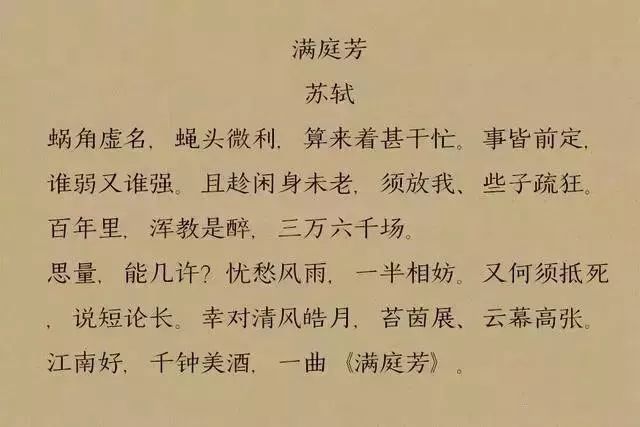 满庭芳
苏轼
蜗角虚名，蝇头微利，算来着甚干忙。事皆前定，
谁弱又谁强。且趁闲身未老，须放我、些子疏狂。
百年里，浑教是醉，三万六千场。
思量，能几许？忧愁风雨，一半相妨。又何须抵死
，说短论长。幸对清风皓月，苔茵展、云幕高张。
江南好，千钟美酒，一曲《满庭芳》。